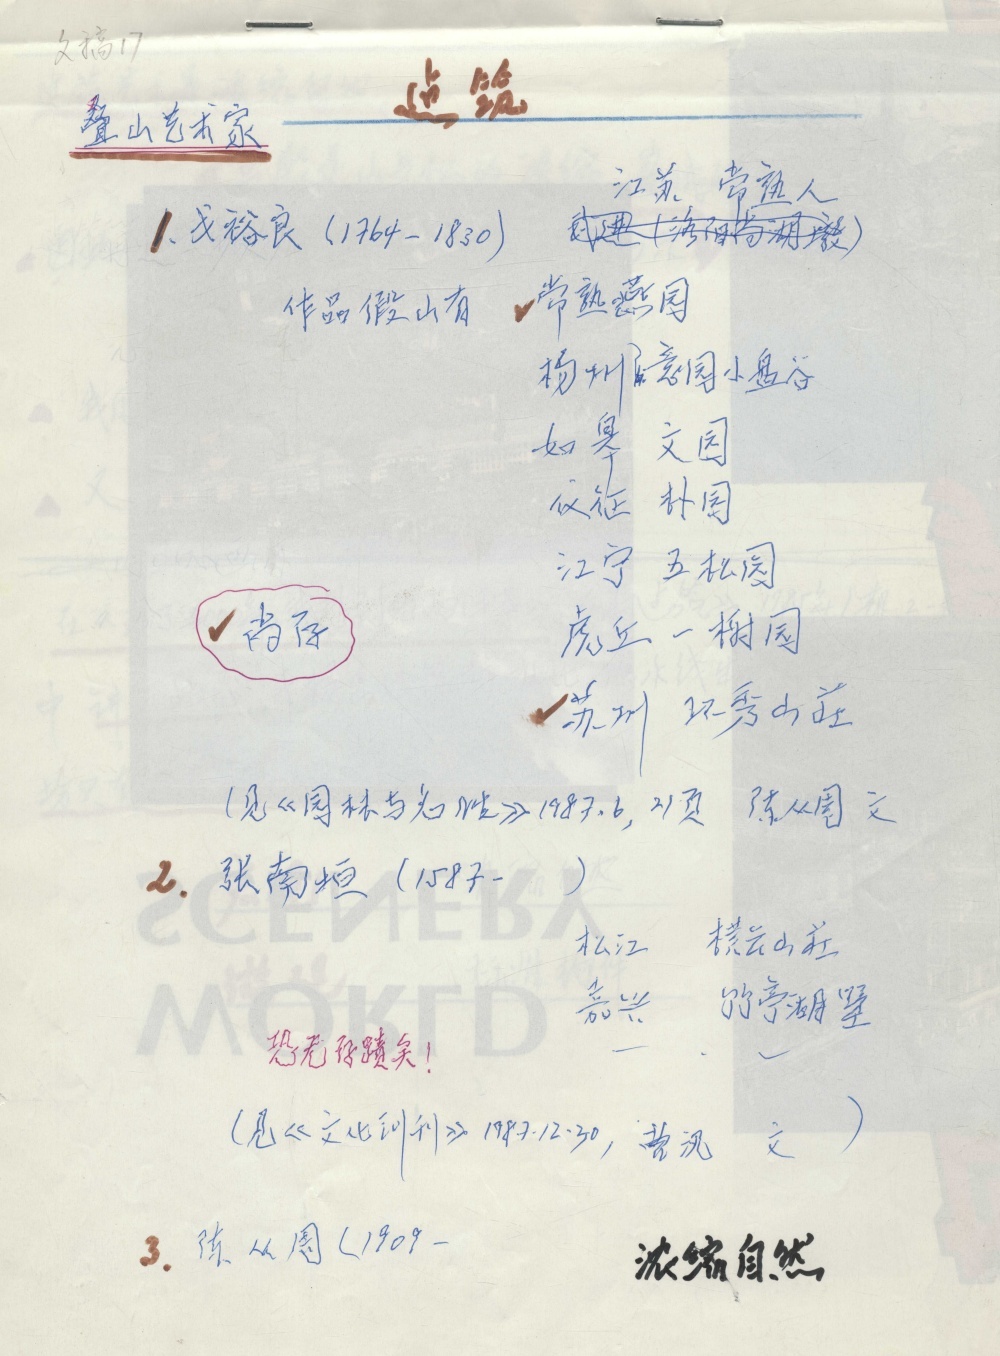 文稿17
造筑
叠山艺术家
江苏 常熟人
1. 戈裕良 (1764-1830)
作品假山有 ✓常熟燕园
扬州 意园小盘谷
如皋 文园
仪征 朴园
江宁 五松园
✓尚存
虎丘 一榭园
✓苏州 环秀山莊
(见《园林与名胜》1987.6, 21页 陈从周文
2. 張南垣 (1587- )
松江 横云山莊
嘉兴 竹亭湖墅
恐无存蹟矣!
(见《文化周刊》1987.12.30, 曹汛 文 )
3. 陈从周 (1909-
浓缩自然
SCENERY
WORLD